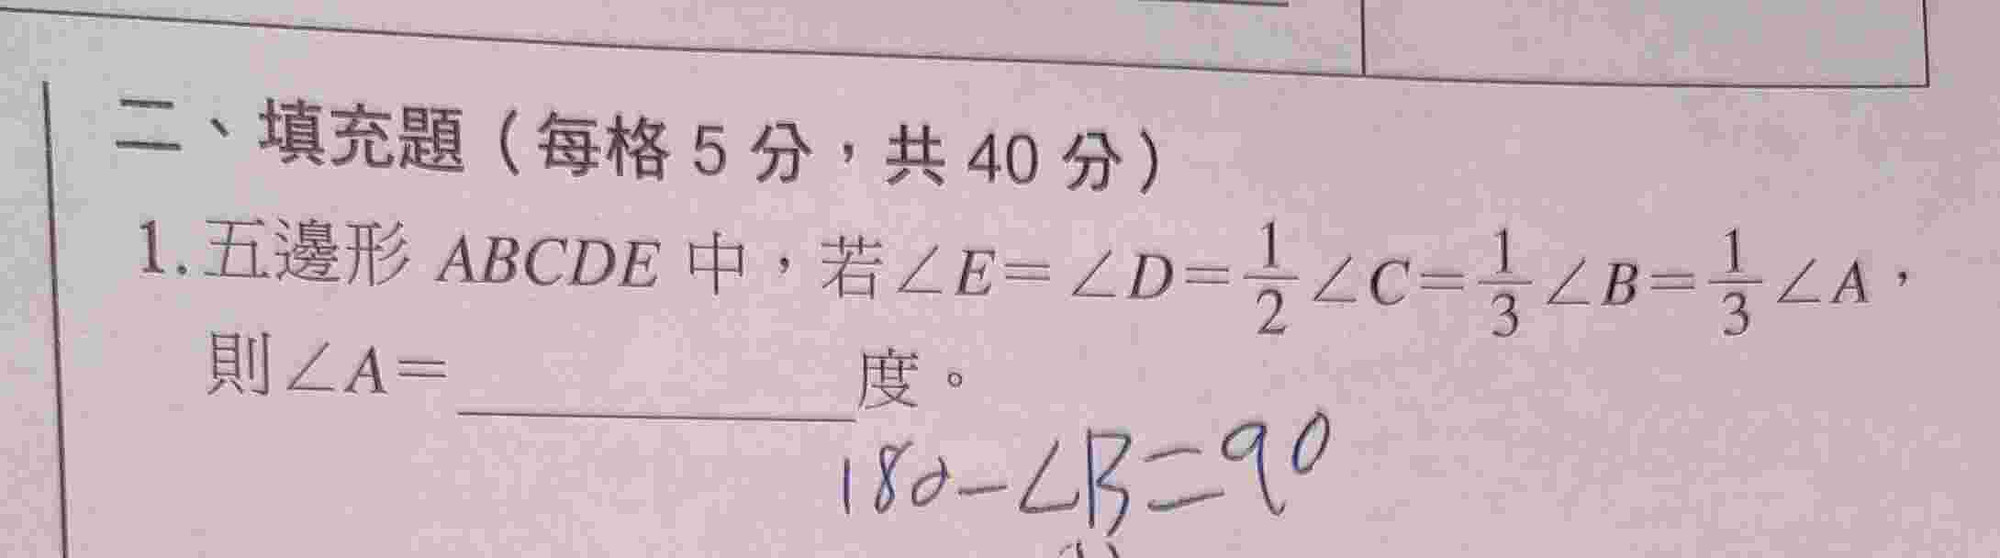 二、填充題（每格 5 分，共 40 分）
1. 五邊形 ABCDE 中，若∠E=∠D=1/2∠C=1/3∠B=1/3∠A，
則∠A=________度。
180-∠B=90